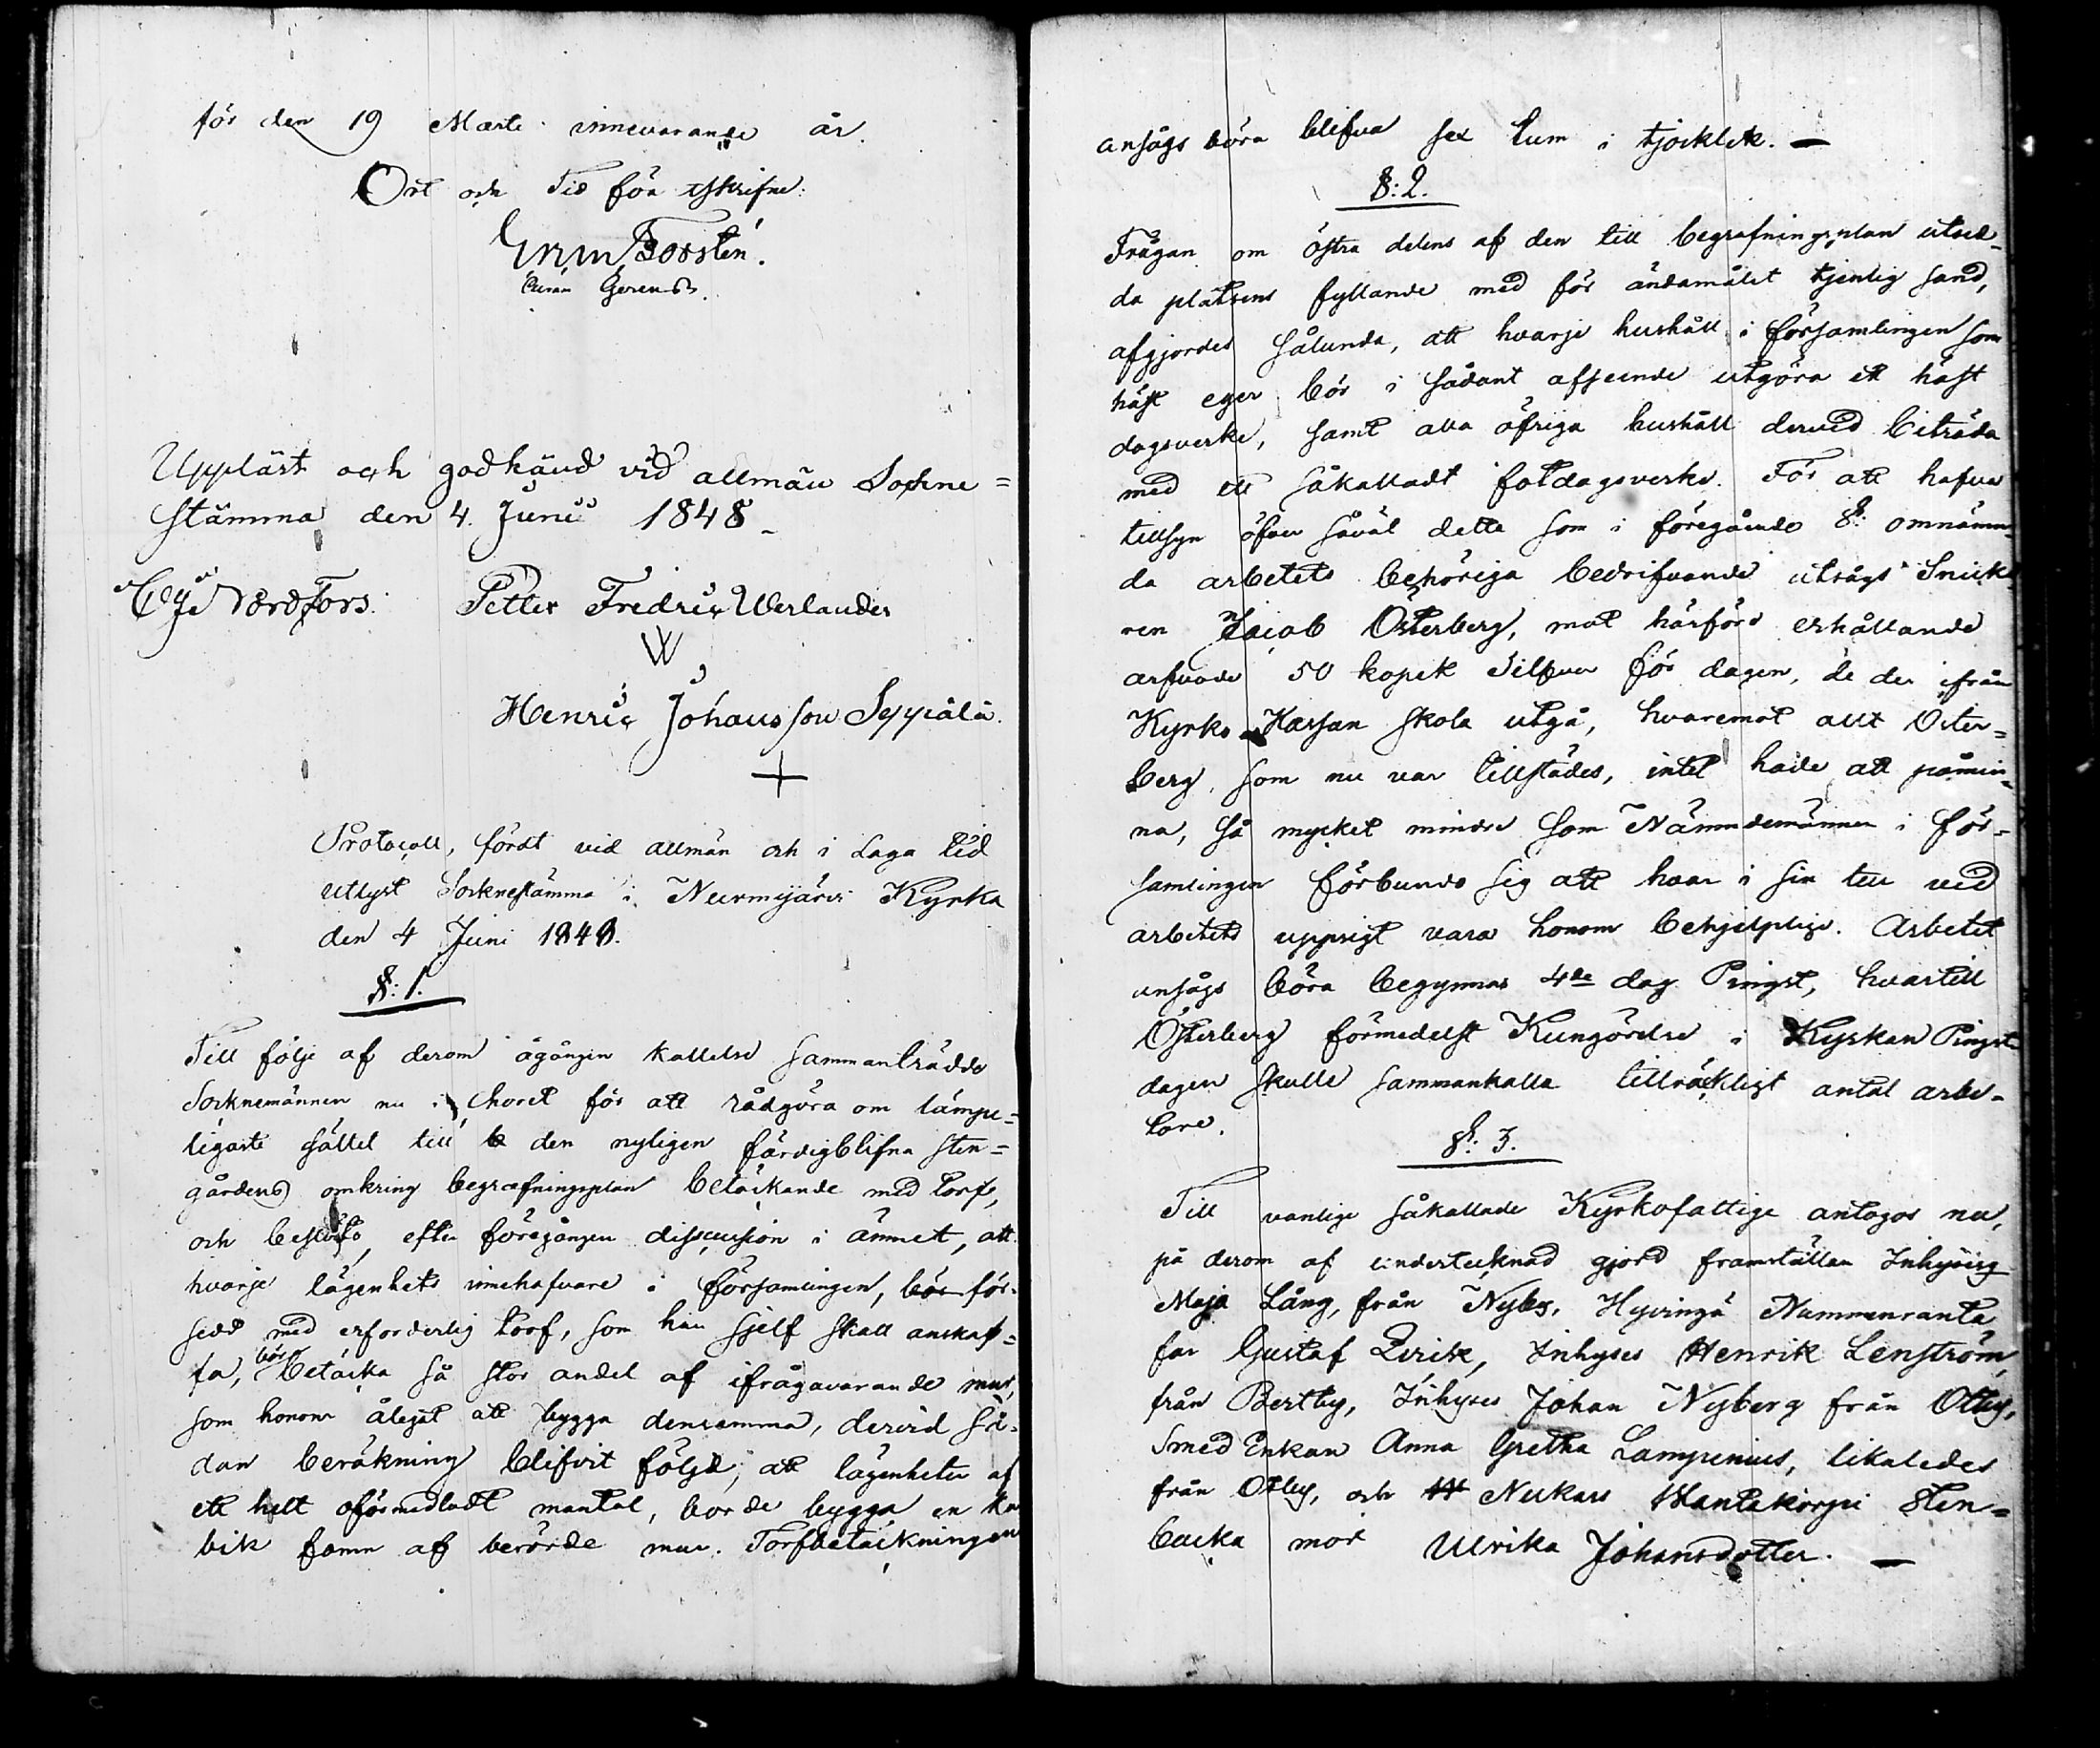 för den 19 Martii innevarande år.
Ort och Tid förr utskrifne:
Forstén.
Curam Gerens.
Uppläst och godkänd vid allmän Sockne=
stämma den 4. Junii 1848_
Nordfors. Petter Fredric Werlander
W
Henric Johansson Seppälä.
+
Protocoll, fördt vid allmän och i Laga tid
utlyst Socknestämma i Nurmijärvi Kyrka
den 4 Juni 1848.
§: 1.
Till följe af derom ågången kallelse sammanträdde
Socknemännen nu i choret för att rådgöra om lämpe=
ligaste sättet till den nyligen färdigblifna sten=
gårdens omkring begrafningsplan betäckande med torf,
och beslöts, efter föregången discussion i ämnet, att
hvarje lägenhets innehafvare i Församlingen, bör för-
sedd med erforderlig torf, som han sjelf skall anskaf=
fa, bör betäcka så stor andel af ifrågavarande mur,
som honom ålegat att bygga densamma, dervid så-
dan beräkning blifvit följd, att lägenheter af
ett helt oförmedladt mantal, borde bygga en ku
bik famn af berörde mur. Torfbetäckningen
ansågs böra blifva sex tum i tjocklek. —
§: 2.
Frågan om östra delens af den till begrafningsplan utsed=
da platsens fyllande med för ändamålet tjenlig sand,
afgjordes sålunda, att hvarje hushåll i församlingen som
häst eger bör i sådant afseende utgöra ett häst
dagsverke, samt alla öfriga hushåll dervid biträda
med ett såkalladt fotdagsverke. För att hafva
tillsyn öfver såväl detta som i föregående §: omnämn=
da arbetets behöriga bedrifvande utsågs Snicka
ren Jacob Österberg, mot härför erhållande
arfvode 50 kopek Silfver för dagen, de der ifrån
Kyrko Kassan skola utgå, hvaremot allt Öster=
berg, som nu var tillstädes, intet hade att påmin=
na, så mycket mindre som Nämndemännen i för=
samlingen förbundo sig att hvar i sin tur vid
arbetets uppsigt vara honom behjelplige. Arbetet
ansågs böra begynnas 4de dag Pingst, hvartill
Österberg förmedelst Kungörelse i Kyrkan Pingst=
dagen skulle sammankalla tillräckligt antal arbe-
tare.
§: 3.
Till vanlige såkallade Kyrkofattige antogos nu,
på derom af undertecknad gjord framställan Inhysisg
Maja Lång, från Nyby, Hyvingä Nummenranta
far Gustaf Qvick, Inhyses Henrik Lenström,
från Bertby, Inhyses Johan Nyberg från Otby,
Smed Enkan Anna Gretha Lampenius, likaledes
från Otby, och Nukars Hantakorpi Sten=
backa mor Ulrika Johansdotter. —